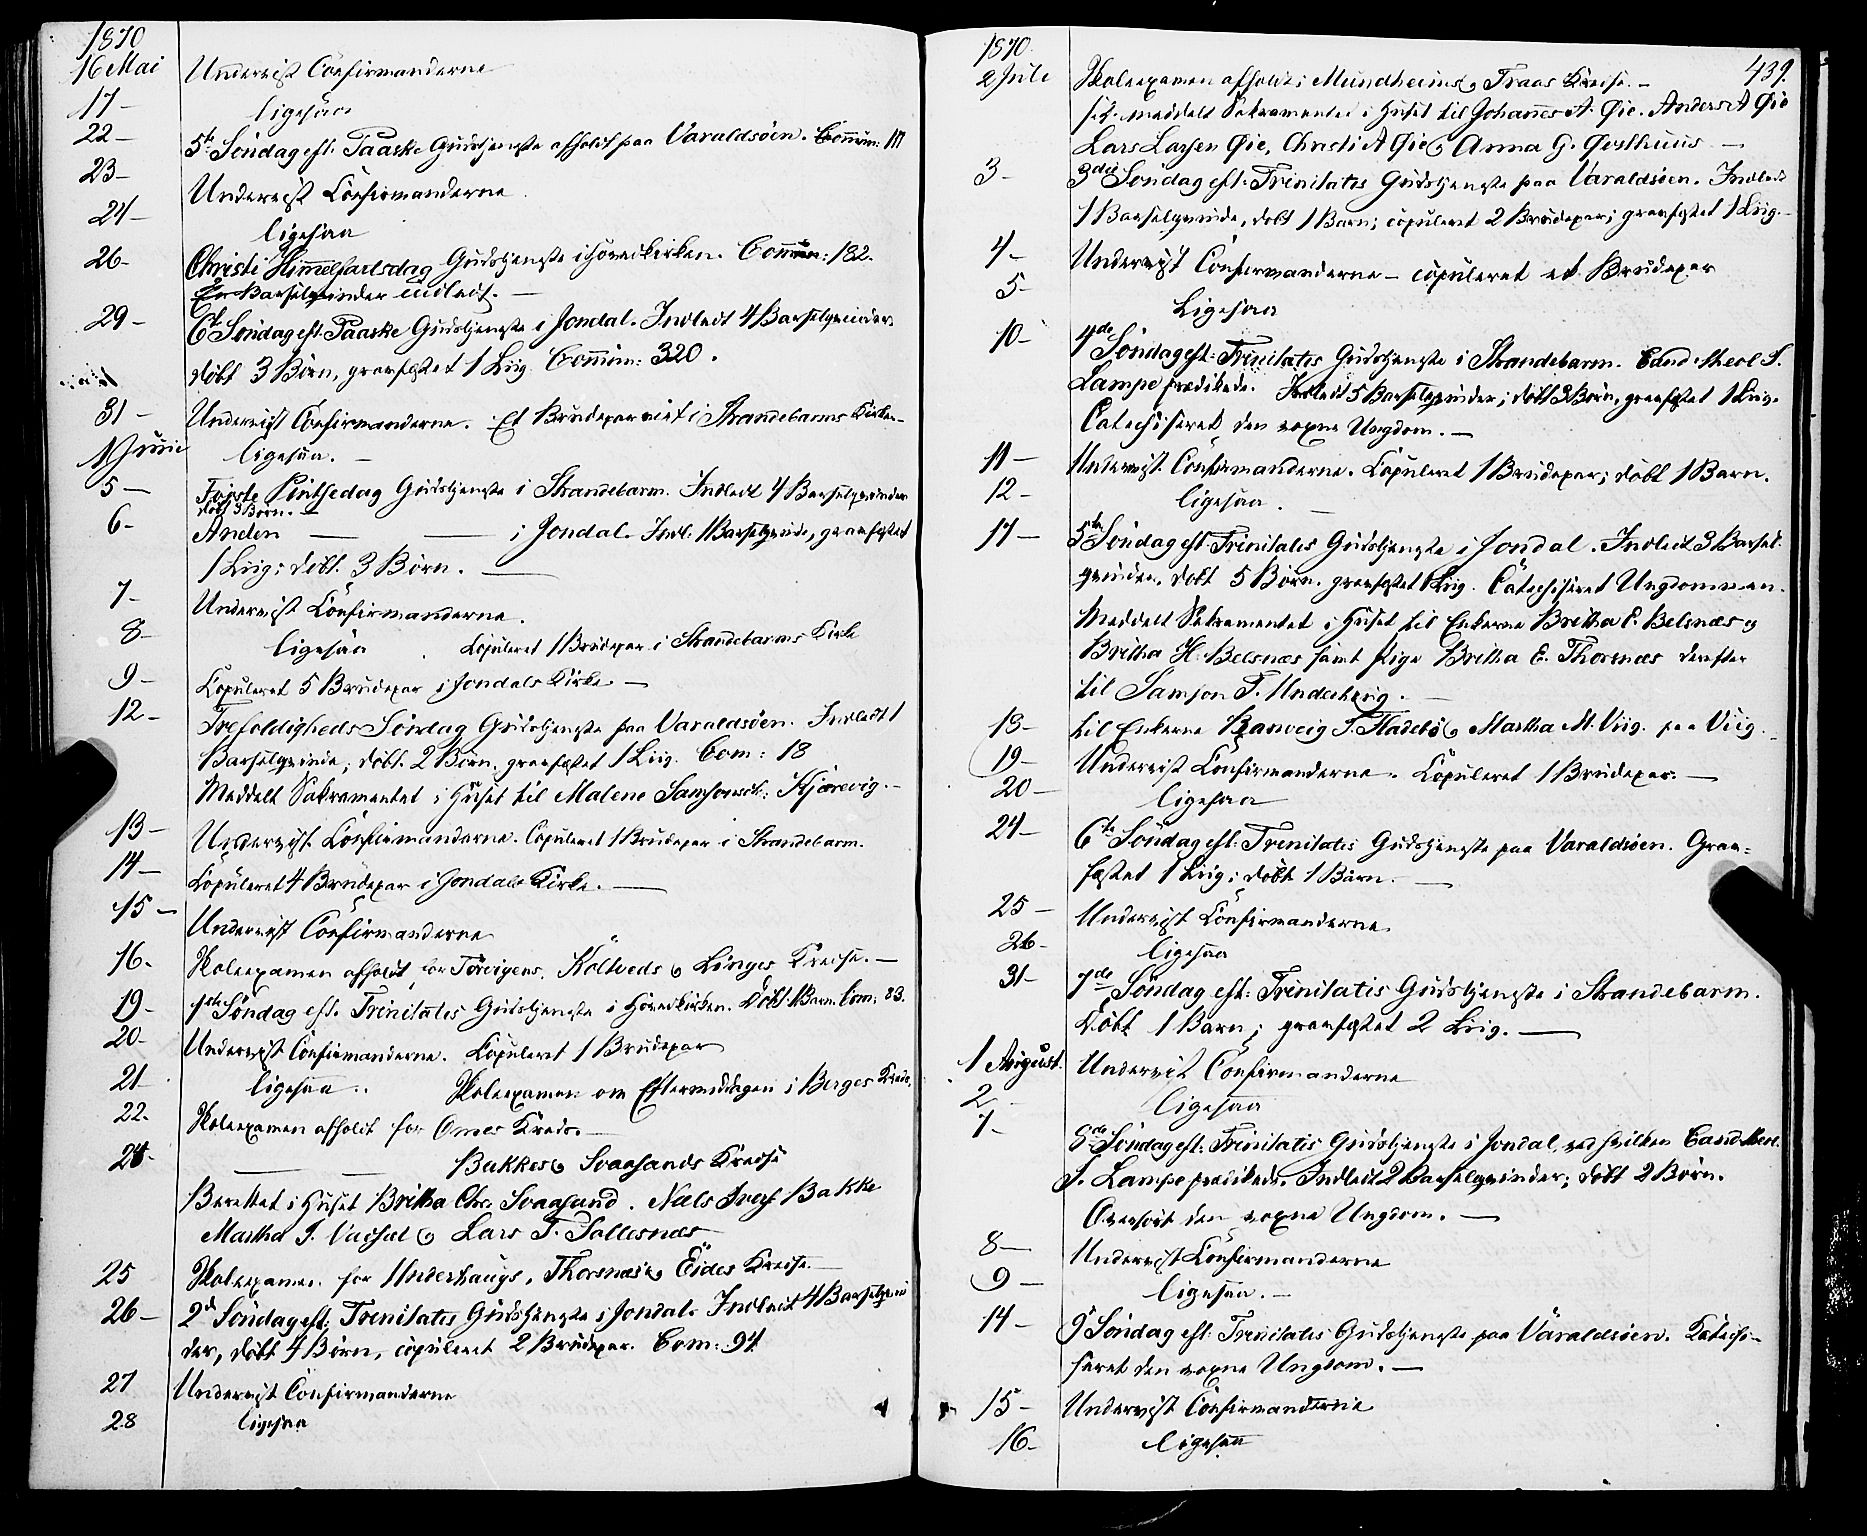 1870
16 Mai Undervist Confirmanderne
17 — ligesaa
22 — 5te Søndag eft: Paaske Gudstjeneste afholdt paa Varaldsøen. Commun: 111
23 — Undervist Confirmanderne.
24 — ligesaa
26 — Christi Himmelfartsdag Gudstjeneste i Hovedkirken. Commun: 182.
Barselqvinder indledt. —
29 — 6te Søndag eft: Paaske Gudstjeneste i Jondal. Indledt 4 Barselqvinder
døbt 3 Børn, graefæstet 1 Liig. Commun: 320.
31 — Undervist Confirmanderne. Et Brudepar viet i Strandebarms Kirke —
1 Juni ligesaa. —
5 — Første Pintsedag Gudstjeneste i Strandebarm. Indledt 4 Barselqvinder
døbt 3 Børn. —
6 — Anden — — i Jondal. Indl: 1 Barselqvinde, graefæstet
1 Liig; døbt. 3 Børn. —
7 — Undervist Confirmanderne.
8 — ligesaa. Copuleret 1 Brudepar i Strandebarms Kirke
9 — Copuleret 5 Brudepar i Jondals Kirke —
12 — Trefoldigheds Søndag Gudstjeneste paa Varaldsøen. Indledt 1
Barselqvinde; døbt. 2 Børn, graefæstet 1 Liig. Com: 18
Meddelt Sakramentet i Huset til Malene Samsonsd: Kjærevig. —
13 — Undervist Confirmanderne. Copuleret 1 Brudepar i Strandebarm.
14 — Copuleret 4 Brudepar i Jondals Kirke. —
15 — Undervist Confirmanderne
16. Skoleexamen afholdt for Tørvigens, Koltveds og Linges Kredse. —
19 — 1ste Søndag eft. Trinitatis Gudstjeneste i Hovedkirken. Døbt 1 Barn. Com: 23.
20 — Undervist Confirmanderne. Copuleret 1 Brudepar
21 ligesaa.. Skoleexamen om Eftermiddagen i Berges Kreds.
22. Skoleexamen afholdt for Omes Kreds. —
24 — — Bakkes og Svaasands Kredse
Berettet i Huset Britha Chr. Svaasand. Næls Bakke
Martha J. og Lars T. Sollesnæs
25 Skoleexamen for Underhaugs, Thorsnæs og Eides Kredse —
26 — 2d Søndag eft: Trinitatis Gudstjeneste i Jondal. Indledt 4 Barselqvin
der, døbt 4 Børn, copuleret 2 Brudepar. Com: 94
27 Undervist Confirmanderne
28 ligesaa
1870. 439.
2 Juli Skoleexamen afholdt i Mundheims og Traas Kredse. —
meddelt Sakramentet i Huset til Johannes A. Øie. Anders A Øie
Lars Larsen Øie, Christi A Øie og Anna G. Østhuus —
3 — 3die Søndag eft: Trinitatis Gudstjeneste paa Varaldsøen. Indledt
1 Barselqvinde, døbt 1 Barn; copuleret 2 Brudepar; graefæstet 1 Liig. —
4 — Undervist Confirmanderne — copuleret et Brudepar
5 — Ligesaa
10 — 4de Søndag eft: Trinitatis Gudstjeneste i Strandebarm. Cand. theol S.
Lampe prædikede. Indledt 5 Barselqvinder; døbt 3 Børn, graefæstet 1 Liig.
Catechiseret den voxne Ungdom. —
11 — Undervist Confirmanderne. Copuleret 1 Brudepar; døbt 1 Barn.
12 — ligesaa. —
17 — 5te Søndag eft: Trinitatis Gudstjeneste i Jondal. Indledt 3 Barsel-
qvinder, døbt 5 Børn. graefæstet 1 Liig. Catechiseret Ungdommen.
Meddelt Sakramentet i Huset til Enkerne Britha P. Belsnæs og
Britha H. Belsnæs samt Pige Britha E. Thorsnæs derefter
til Samson T. Underhaug. —
18 — til Enkerne Ranveig S. Fladebø og Martha M. Viig. paa Viig.
19 — Undervist Confirmanderne. Copuleret 1 Brudepar. —
20 — ligesaa
24 — 6te Søndag eft: Trinitatis Gudstjeneste paa Varaldsøen. Grae-
fæstet 1 Liig; døbt 1 Barn. —
25 — Undervist Confirmanderne
26 — ligesaa
31 — 7de Søndag eft: Trinitatis Gudstjeneste i Strandebarm.
Døbt 1 Barn; graefæstet 2 Liig. —
1 August. Undervist Confirmanderne
2 — ligesaa
7 — 8de Søndag eft: Trinitatis Gudstjeneste i Jondal, ved hvilken Cand. theol.
S. Lampe prædikede. Indledt 2 Barselqvinder; døbt 2 Børn.
Overhørt den voxne Ungdom. —
8 — Undervist Confirmanderne
9 — ligesaa. —
14 — 9 Søndag eft: Trinitatis Gudstjeneste paa Varaldsøen. Katechi-
seret den voxne Ungdom. —
15 — Undervist Confirmanderne
16 — ligesaa